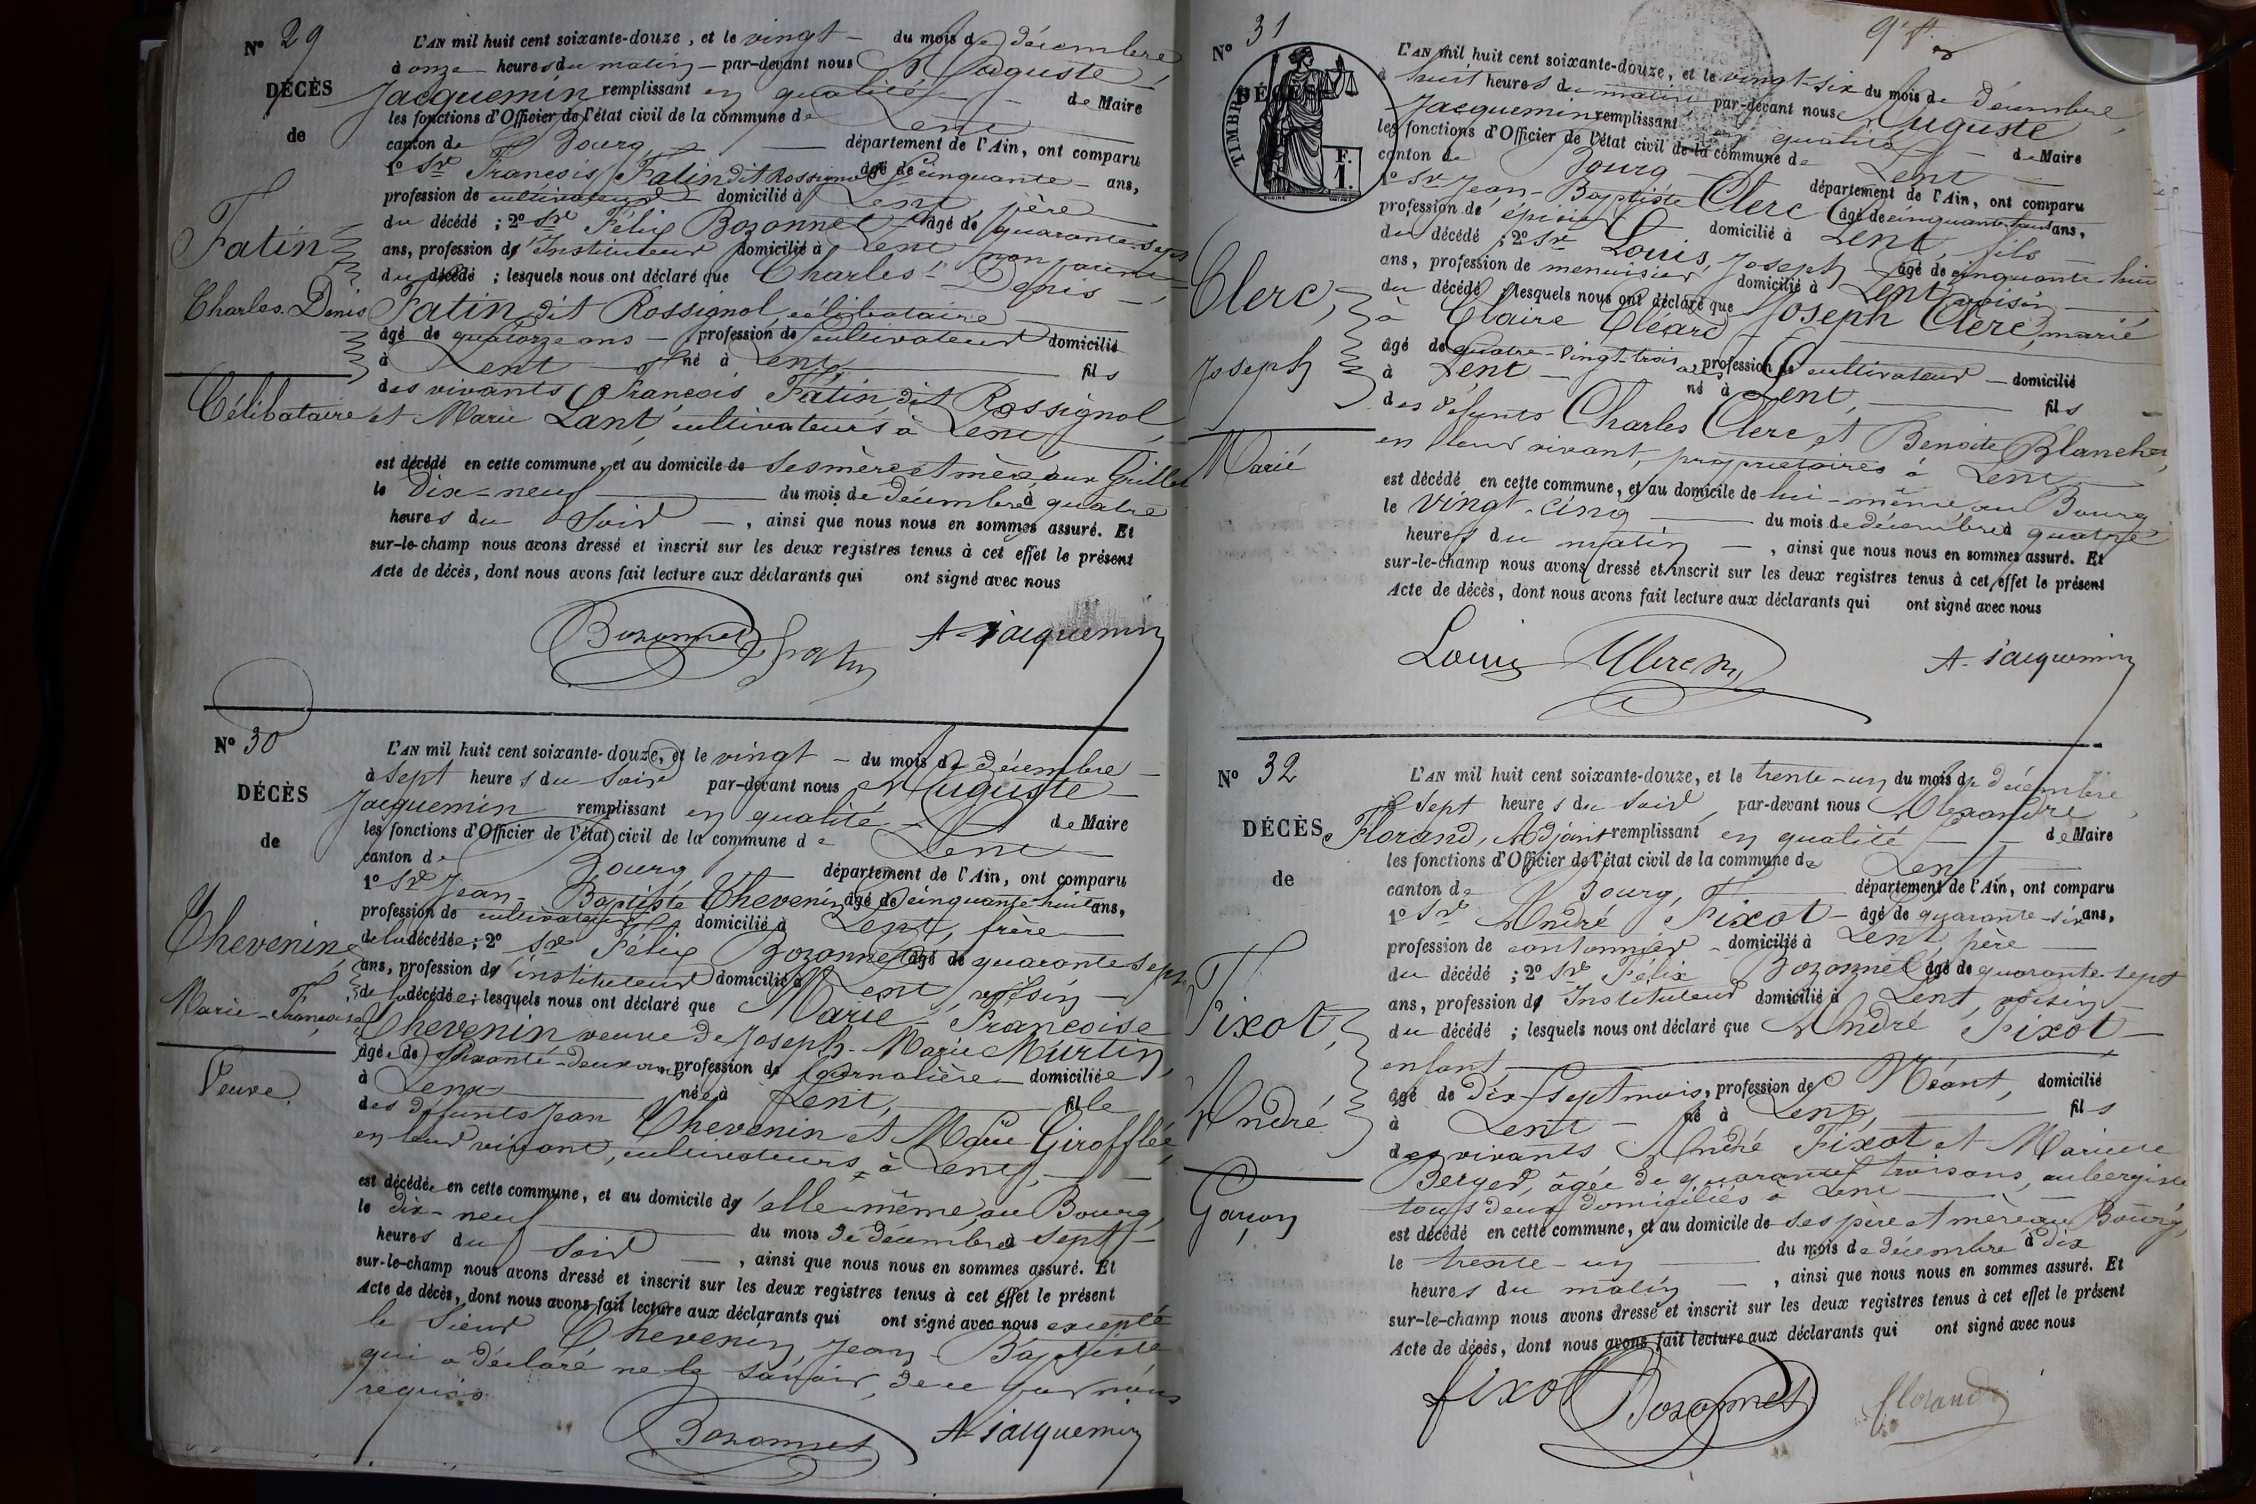 N° 29
DÉCÈS
de
Fatin
Charles Denis
Célibataire
L'AN mil huit cent soixante-douze, et le vingt du mois de décembre
à onze heures du matin par-devant nous Auguste
Jacquemin remplissant en qualité de Maire
les fonctions d'Officier de l'état civil de la commune de Lent
canton de Bourg département de l'Ain, ont comparu
1° Sr François Fatin dit Rossignol âgé de cinquante ans,
profession de cultivateur domicilié à Lent, père
du décédé ; 2° Sr Félix Bozonnet âgé de quarante-sept
ans, profession d'Instituteur domicilié à Lent non parent
du décédé ; lesquels nous ont déclaré que Charles-Denis
Fatin dit Rossignol, célibataire
âgé de quatorze ans profession de cultivateur domicilié
à Lent né à Lent, fils
des vivants François Fatin dit Rossignol
et Marie Lant, cultivateurs à Lent
est décédé en cette commune, et au domicile de ses mère et aux Grillet
le Dix-neuf du mois de décembre à quatre
heures du soir, ainsi que nous nous en sommes assuré. Et
sur-le-champ nous avons dressé et inscrit sur les deux registres tenus à cet effet le présent
Acte de décès, dont nous avons fait lecture aux déclarants qui ont signé avec nous
Bozonnet A. Jacquemin
N° 30
DÉCÈS
de
Thevenin
Marie-Françoise
Veuve
L'AN mil huit cent soixante-douze, et le vingt du mois de décembre
à sept heures du soir par-devant nous Auguste
Jacquemin remplissant en qualité de Maire
les fonctions d'Officier de l'état civil de la commune de Lent
canton de Bourg département de l'Ain, ont comparu
1° Sr Jean-Baptiste Thevenin âgé de cinquante-huit ans,
profession de cultivateur domicilié à Lent, frère
de la décédée ; 2° Sr Félix Bozonnet âgé de quarante sept
ans, profession d'instituteur domicilié à Lent, voisin
de la décédée ; lesquels nous ont déclaré que Marie-Françoise
Thevenin veuve de Joseph-Marie Murtin
âgée de soixante-deux ans, profession de journalière domiciliée
à Lent née à Lent, fille
des défunts Jean Thevenin et Marie Girofflée
en leur vivant, cultivateurs à Lent,
est décédée en cette commune, et au domicile d'elle-même, au Bourg,
le dix-neuf du mois de décembre à sept
heures du soir, ainsi que nous nous en sommes assuré. Et
sur-le-champ nous avons dressé et inscrit sur les deux registres tenus à cet effet le présent
Acte de décès, dont nous avons fait lecture aux déclarants qui ont signé avec nous excepté
le sieur Thevenin, Jean-Baptiste
qui a déclaré ne le savoir, de ce par nous
requis
Bozonnet A. Jacquemin
N° 31
9e f.
TIMBRE
F.
1.
DÉCÈS
Clerc,
Joseph
Marié
L'AN mil huit cent soixante-douze, et le vingt-six du mois de décembre,
à huit heures du matin par-devant nous Auguste
Jacquemin remplissant en qualité de Maire
les fonctions d'Officier de l'état civil de la commune de Lent
canton de Bourg département de l'Ain, ont comparu
1° Sr Jean-Baptiste Clerc âgé de cinquante-huit ans,
profession de épicier domicilié à Lent, fils
du décédé ; 2° Sr Louis, Joseph âgé de cinquante-huit
ans, profession de menuisier domicilié à Lent, voisin
du décédé ; lesquels nous ont déclaré que Joseph Clerc, marié
à Claire Cléard
âgé de quatre-vingt-trois ans, profession de cultivateur domicilié
à Lent né à Lent, fils
des défunts Charles Clerc et Benoite Blanchet,
en leur vivant, propriétaires à Lent
est décédé en cette commune, et au domicile de lui-même au Bourg
le vingt-cinq du mois de décembre à quatre
heures du matin, ainsi que nous nous en sommes assuré. Et
sur-le-champ nous avons dressé et inscrit sur les deux registres tenus à cet effet le présent
Acte de décès, dont nous avons fait lecture aux déclarants qui ont signé avec nous
Louis Clerc A. Jacquemin
N° 32
DÉCÈS
de
Fixot,
André
Garçon
L'AN mil huit cent soixante-douze, et le trente-un du mois de décembre
à sept heures du soir par-devant nous Alexandre
Florand, Adjoint remplissant en qualité de Maire
les fonctions d'Officier de l'état civil de la commune de Lent
canton de Bourg, département de l'Ain, ont comparu
1° Sr André Fixot âgé de quarante-six ans,
profession de cantonnier domicilié à Lent, père
du décédé ; 2° Sr Félix Bozonnet âgé de quarante-sept
ans, profession d'Instituteur domicilié à Lent, voisin
du décédé ; lesquels nous ont déclaré que André Fixot
enfant
âgé de dix-sept mois, profession de Néant, domicilié
à Lent né à Lent, fils
des vivants André Fixot et Mariette
Berger, âgée de quarante trois ans, aubergiste
tous deux domiciliés à Lent
est décédé en cette commune, et au domicile de ses père et mère au Bourg,
le trente-un du mois de décembre à dix
heures du matin, ainsi que nous nous en sommes assuré. Et
sur-le-champ nous avons dressé et inscrit sur les deux registres tenus à cet effet le présent
Acte de décès, dont nous avons fait lecture aux déclarants qui ont signé avec nous
fixot Bozonnet florand